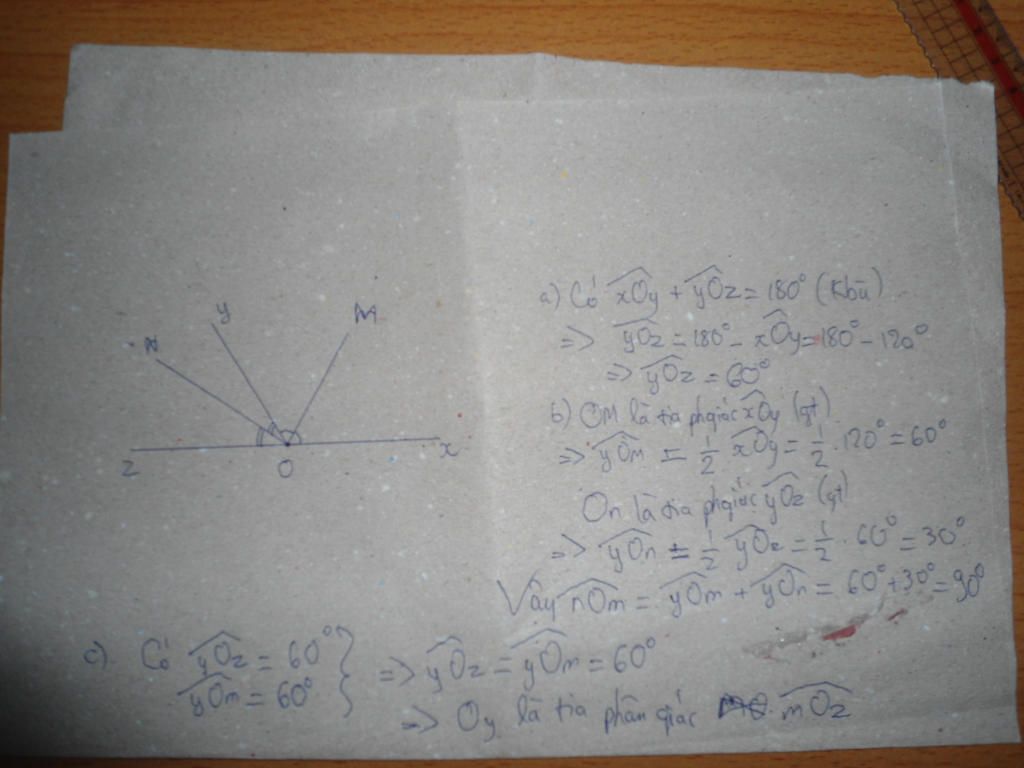 N
y
M
z
O
x
a) Có xOy + yOz = 180° (kbù)
=> yOz = 180° - xOy = 180° - 120°
=> yOz = 60°
b) OM là tia phgiác xOy (gt)
=> yOm = 1/2 . xOy = 1/2 . 120° = 60°
On là tia phgiác yOz (gt)
=> yOn = 1/2 yOz = 1/2 . 60° = 30°
Vậy nOm = yOm + yOn = 60° + 30° = 90°
c) Có yOz = 60° } => yOz = yOm = 60°
yOm = 60°
=> Oy là tia phân giác mOz